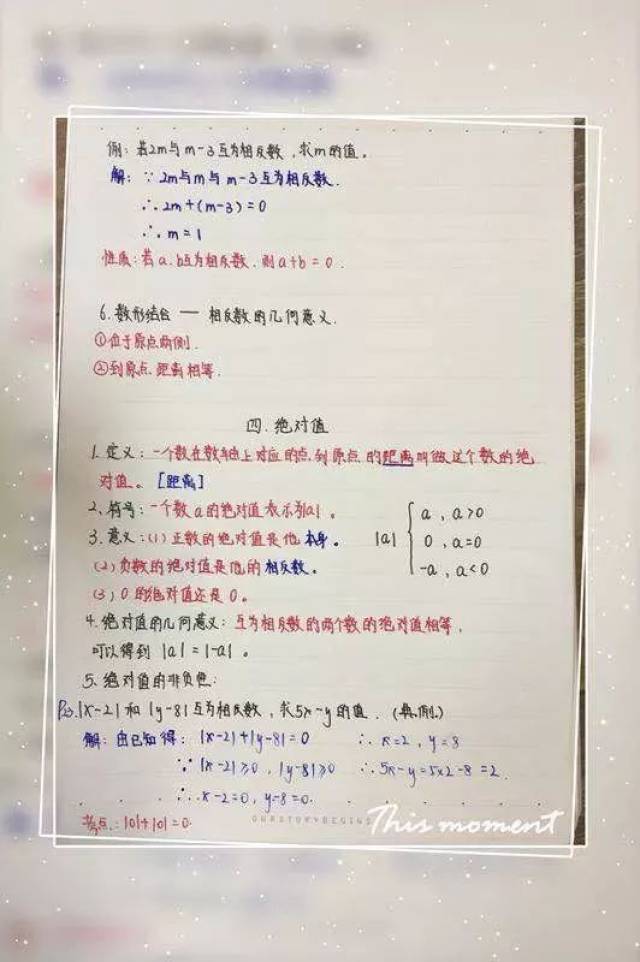 例：若2m与m-3互为相反数，求m的值。
解：∵2m与m与m-3互为相反数.
∴2m+(m-3)=0
∴m=1
性质：若a.b互为相反数.则a+b=0.
6.数形结合 — 相反数的几何意义.
①位于原点两侧.
②到原点距离相等.
四.绝对值
1.定义：一个数在数轴上对应的点到原点的距离叫做这个数的绝
对值。[距离]
2、符号：一个数a的绝对值表示为|a|。
3.意义：(1)正数的绝对值是他本身。
(2)负数的绝对值是他的相反数。
(3)0的绝对值还是0。
|a| { a，a>0
0，a=0
-a，a<0
4.绝对值的几何意义：互为相反数的两个数的绝对值相等，
可以得到|a|=|-a|。
5、绝对值的非负性：
|x-2|和|y-8|互为相反数，求5x-y的值.（典例）
解：由已知得：|x-2|+|y-8|=0 ∴x=2，y=8
∵|x-2|≥0，|y-8|≥0 ∴5x-y=5x2-8=2.
∴x-2=0，y-8=0.
考点：|0|+|0|=0
OURSTORYBEGINS
This moment